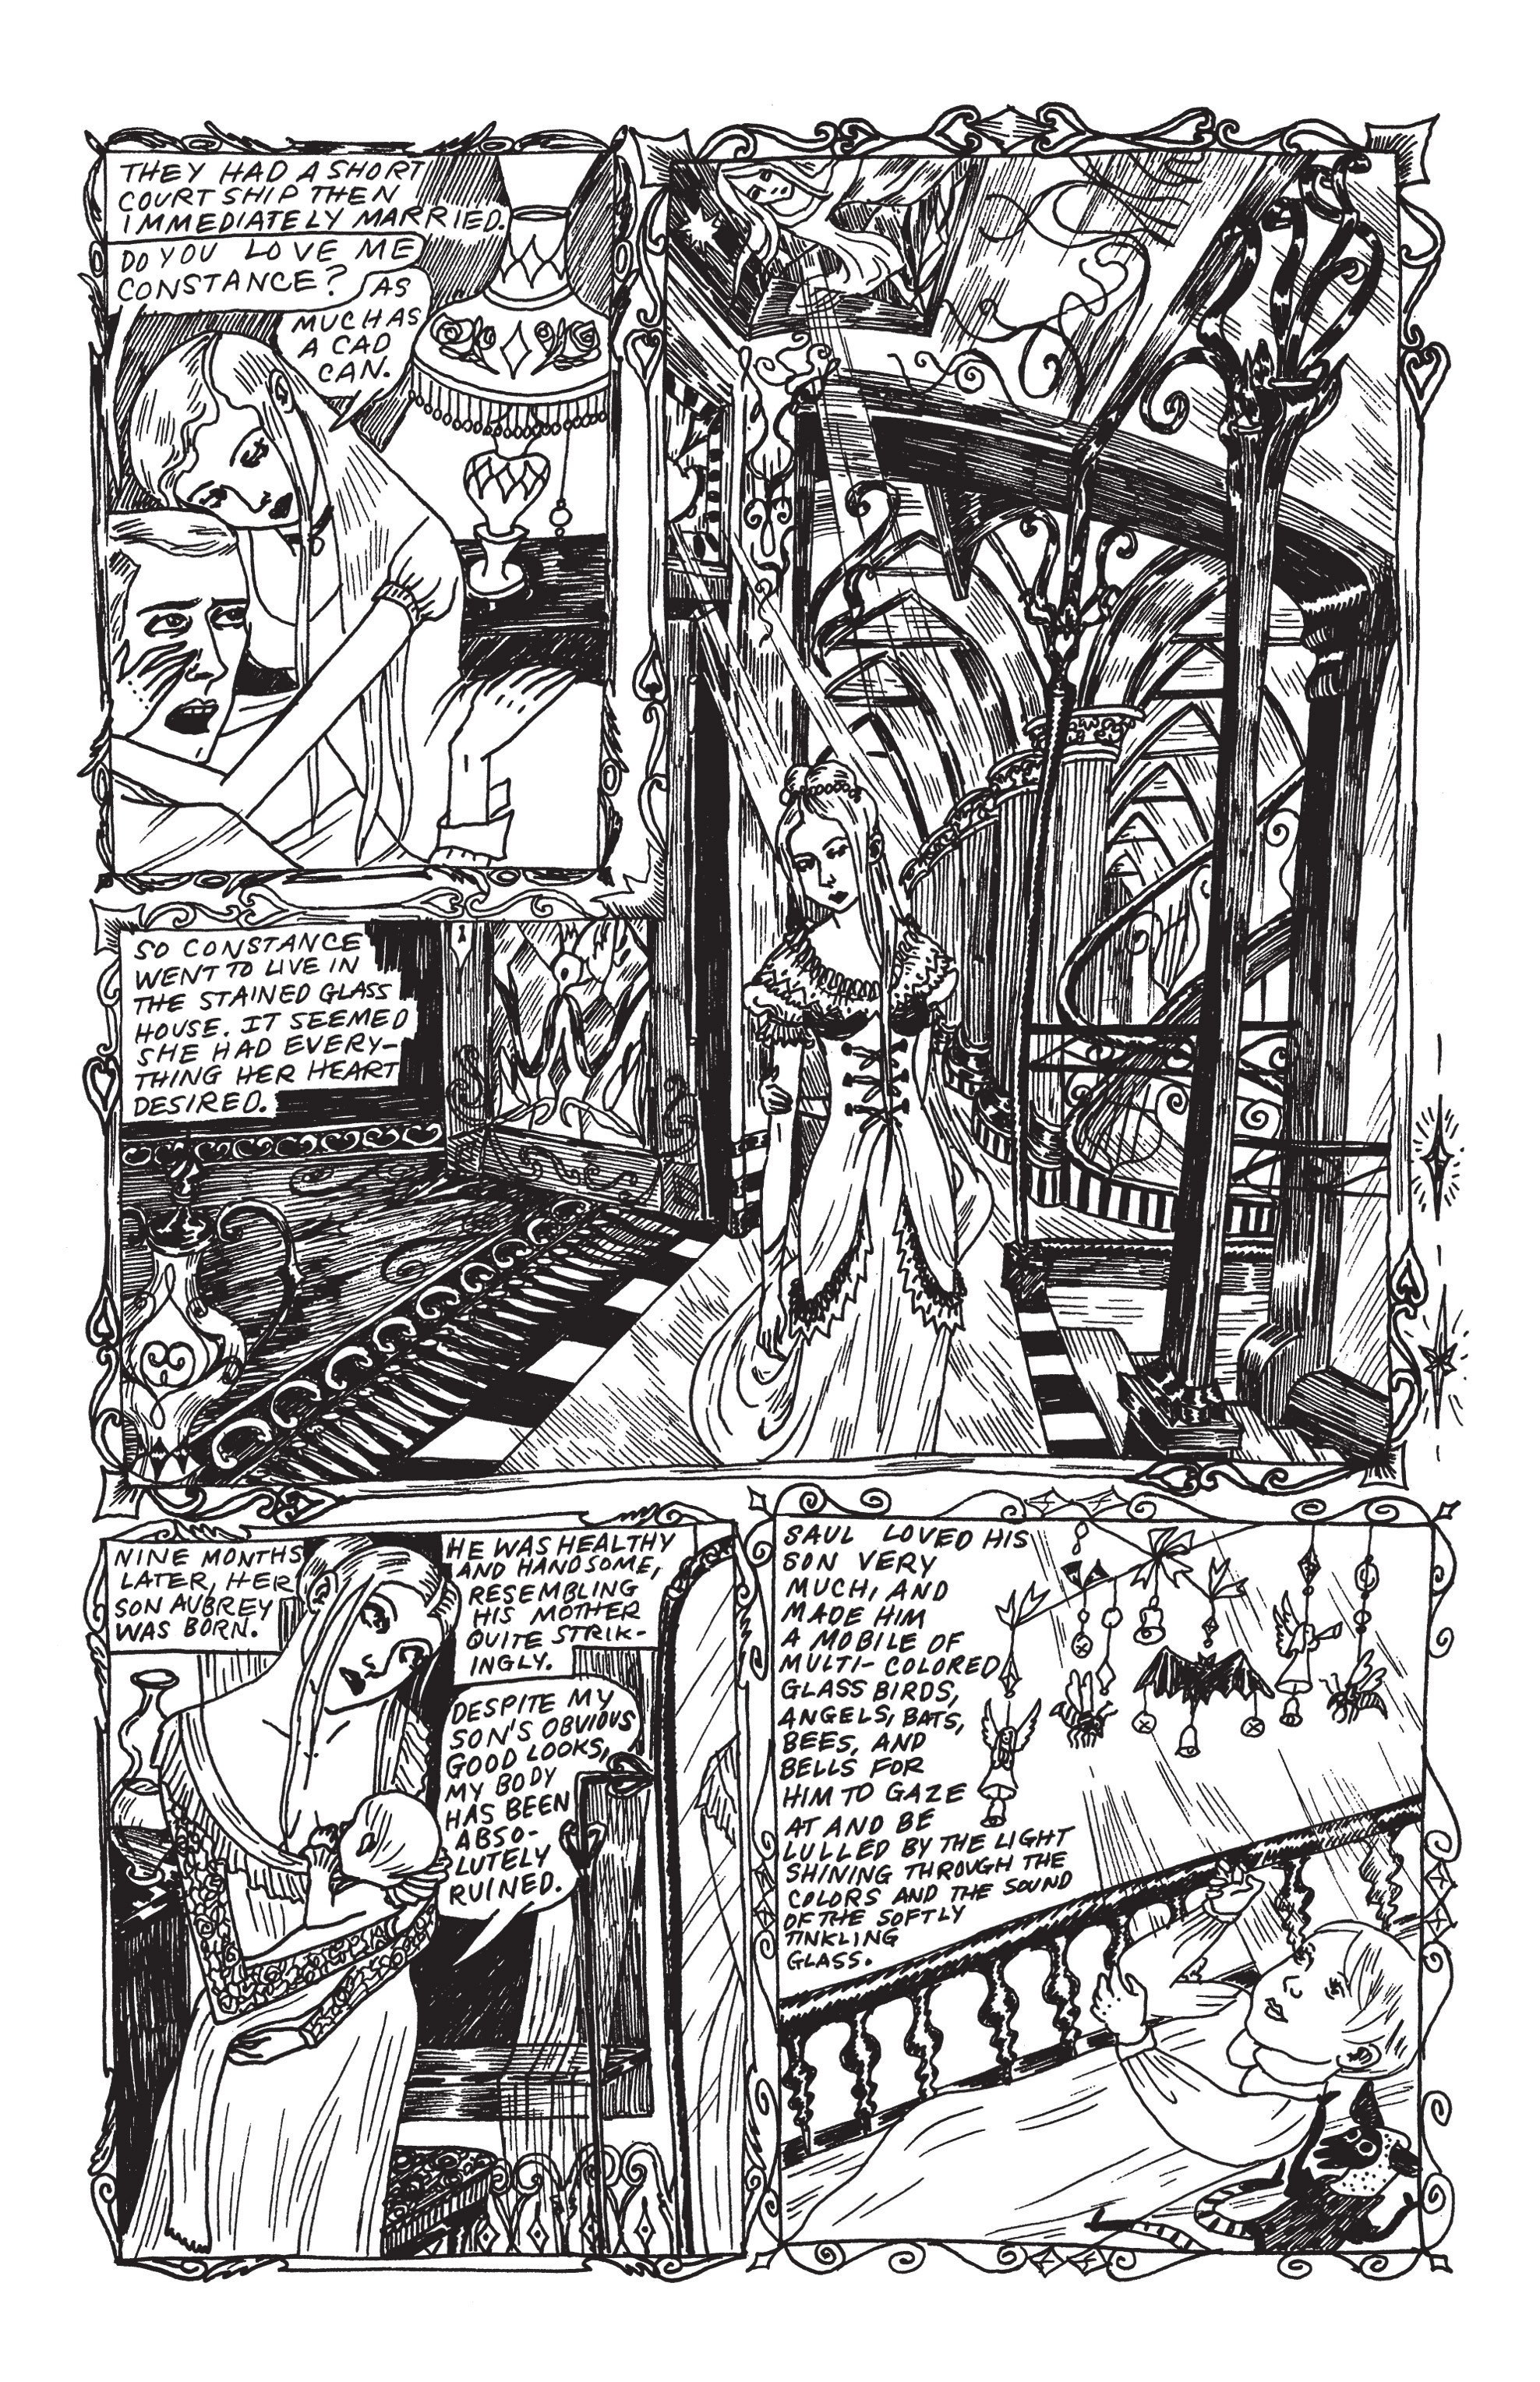 THEY HAD A SHORT
COURTSHIP THEN
IMMEDIATELY MARRIED.
DO YOU LOVE ME
CONSTANCE?
AS
MUCH AS
A CAD
CAN.
SO CONSTANCE
WENT TO LIVE IN
THE STAINED GLASS
HOUSE. IT SEEMED
SHE HAD EVERY-
THING HER HEART
DESIRED.
NINE MONTHS
LATER, HER
SON AUBREY
WAS BORN.
HE WAS HEALTHY
AND HANDSOME,
RESEMBLING
HIS MOTHER
QUITE STRIK-
INGLY.
DESPITE MY
SON'S OBVIOUS
GOOD LOOKS,
MY BODY
HAS BEEN
ABSO-
LUTELY
RUINED.
SAUL LOVED HIS
SON VERY
MUCH, AND
MADE HIM
A MOBILE OF
MULTI-COLORED
GLASS BIRDS,
ANGELS, BATS,
BEES, AND
BELLS FOR
HIM TO GAZE
AT AND BE
LULLED BY THE LIGHT
SHINING THROUGH THE
COLORS AND THE SOUND
OF THE SOFTLY
TINKLING
GLASS.